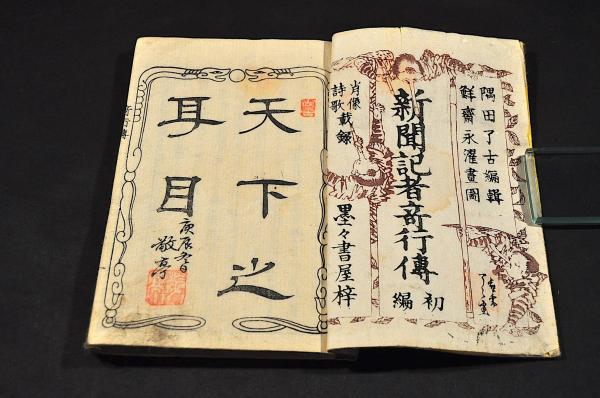 隅田了古編輯
鮮齋永濯畫圖
新聞記者奇行傳
初編
肖像載録
詩歌
墨々書屋梓
天下之
耳目
庚辰冬日
敬宇